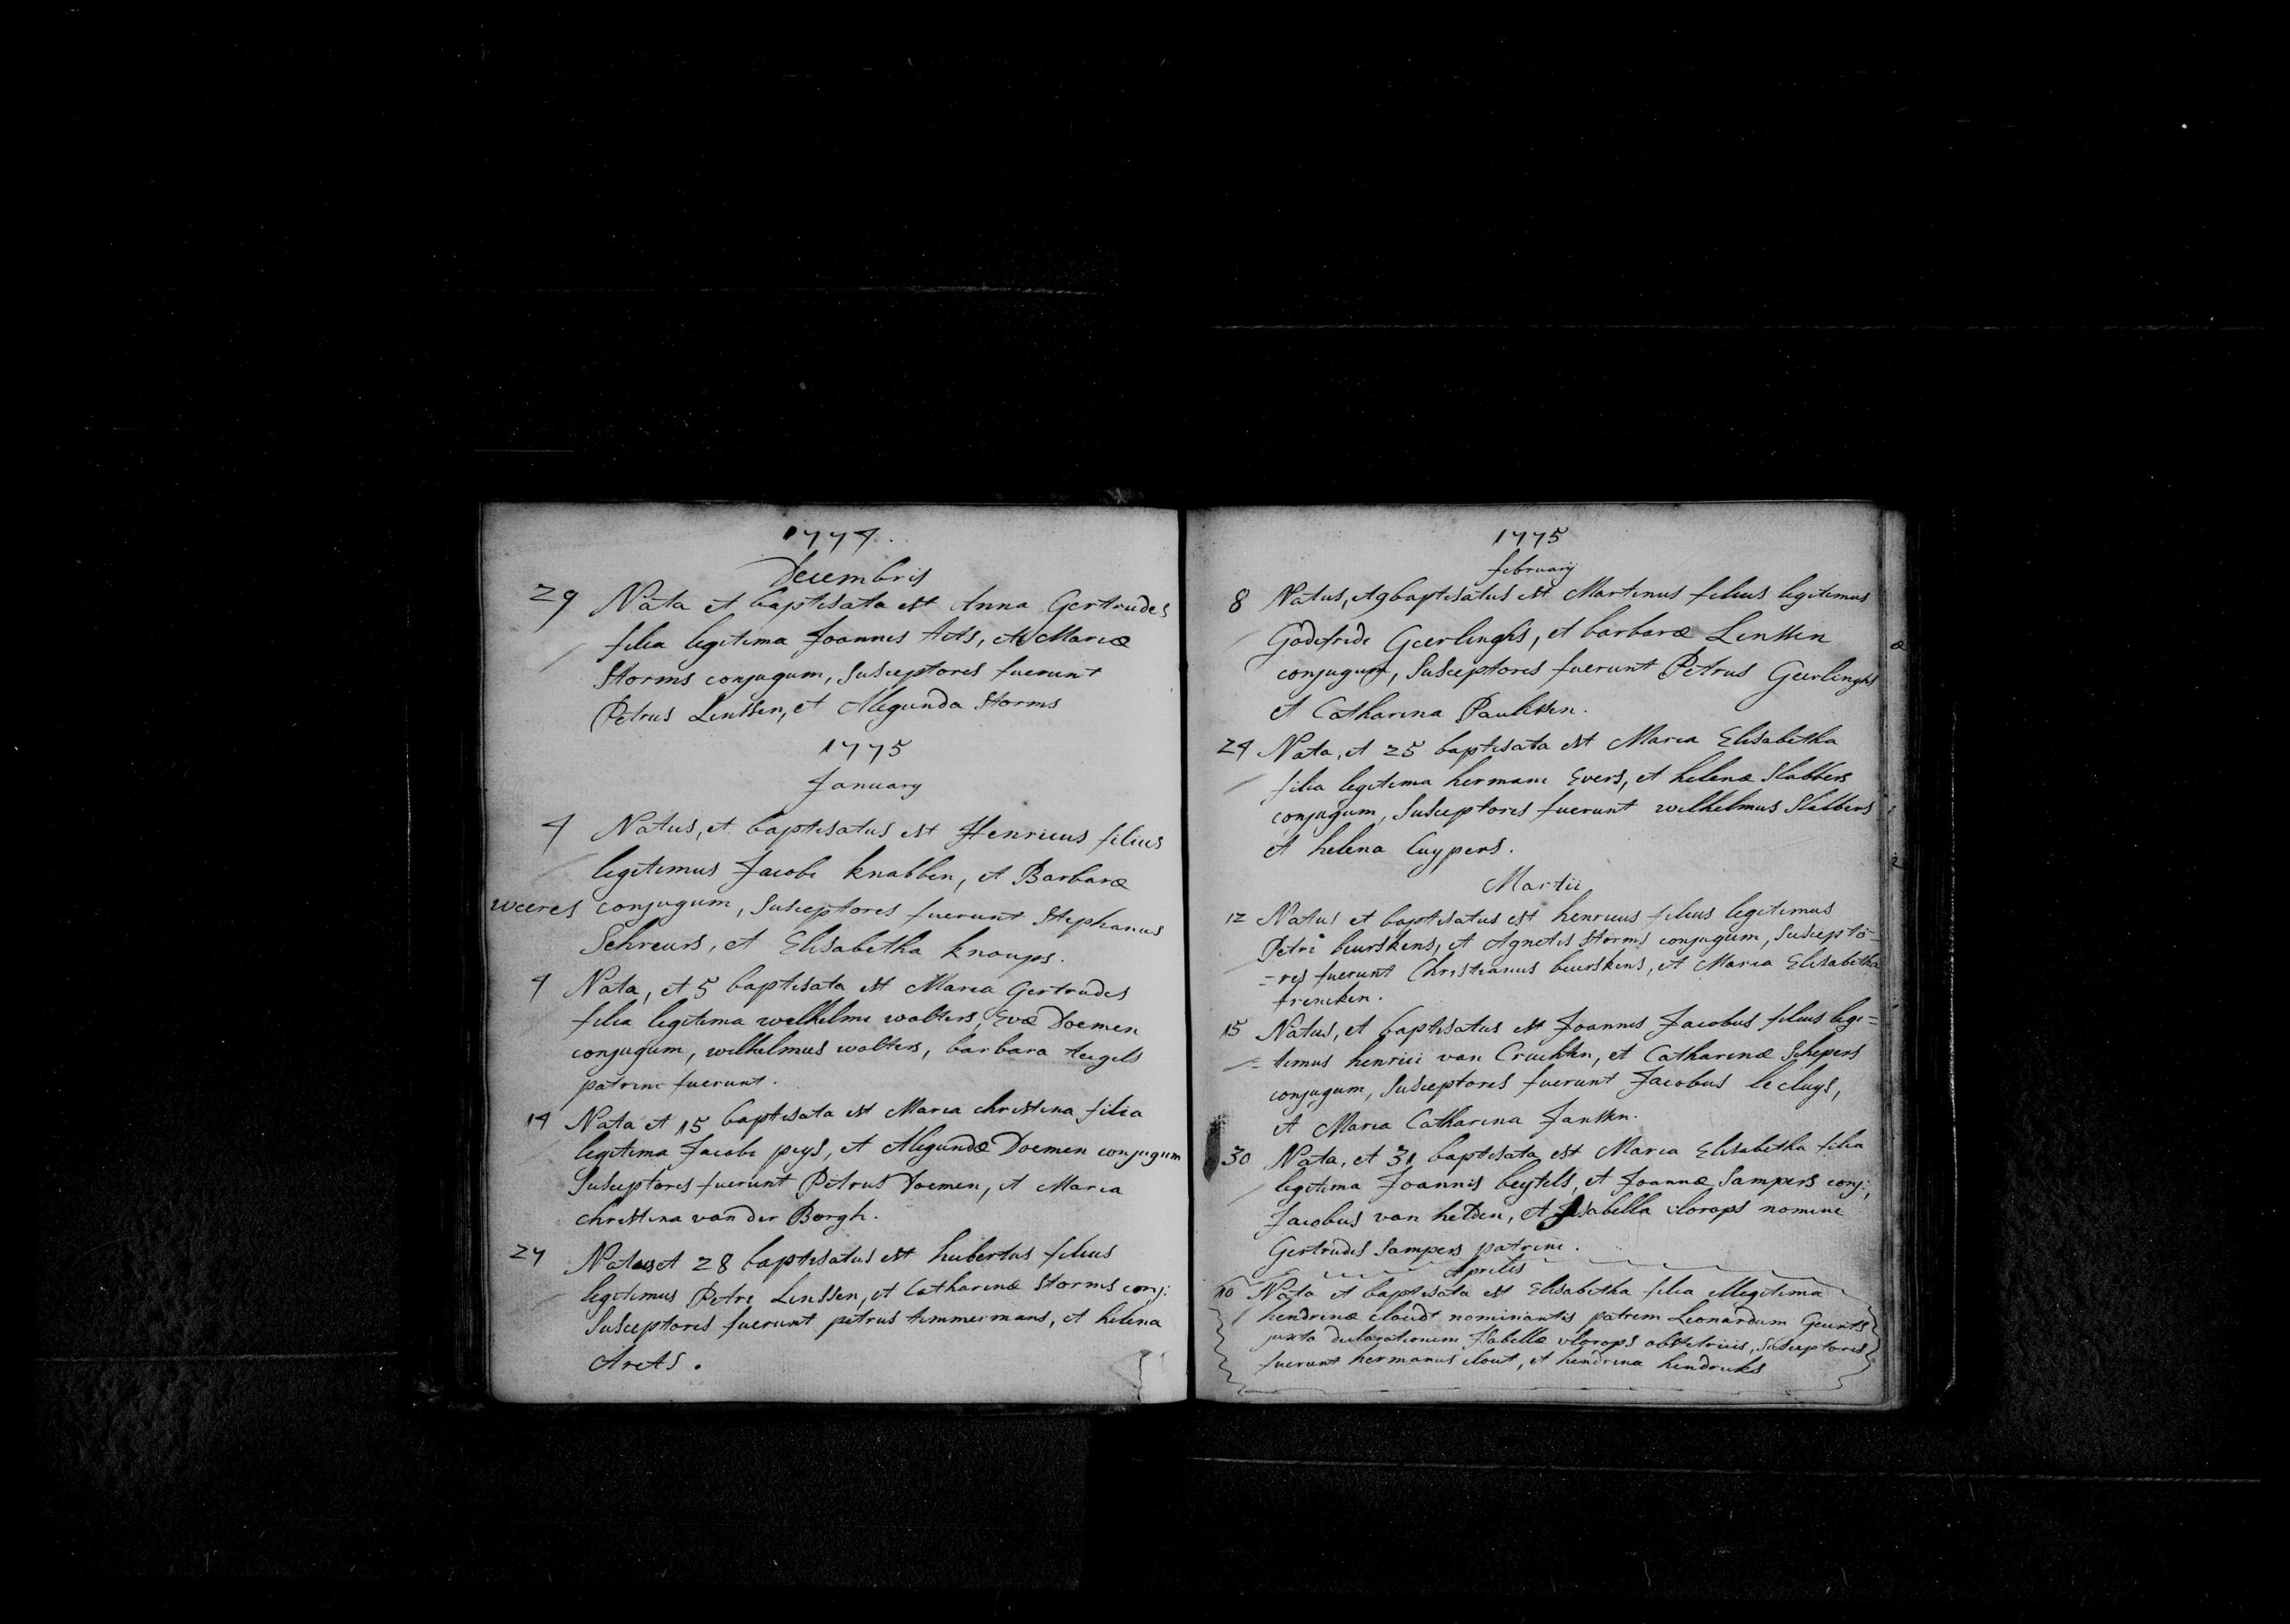 1774.
Decembris
29 Nata et baptisata est Anna Gertrudes
filia legitima Joannis Aets, et Mariæ
Storms conjugum, Susceptores fuerunt
Petrus Linssen, et Alegunda Storms
1775
January
4 Natus, et baptisatus est Henricus filius
legitimus Jacobi knabben, et Barbaræ
weeres conjugum, Susceptores fuerunt Stephanus
Schreurs, et Elisabetha knoups.
4 Nata, et 5 baptisata est Maria Gertrudes
filia legitima wilhelmi wolters, Evæ Doemen
conjugum, wilhelmus wolters, barbara tegels
patrini fuerunt.
14 Nata et 15 baptisata est Maria christina filia
legitima Jacobi peys, et Alegundæ Doemen conjugum
Susceptores fuerunt Petrus Doemen, et Maria
christina van der Borgh.
27 Natus et 28 baptisatus est hubertus filius
legitimus Petri Linssen, et Catharinæ Storms conj:
Susceptores fuerunt petrus timmermans, et helena
Arets.
1775
february
8 Natus, et 9 baptisatus est Martinus filius legitimus
Godefridi Geerlinghs, et barbaræ Linssen
conjugum, Susceptores fuerunt Petrus Geerlinghs
et Catharina Paulissen.
24 Nata, et 25 baptisata est Maria Elisabetha
filia legitima hermani Evers, et helenæ Slabbers
conjugum, Susceptores fuerunt wilhelmus Slabbers
et helena Cuypers.
Martii
12 Natus et baptisatus est henricus filius legitimus
Petri beurskens, et Agnetis Storms conjugum, Suscepto=
=res fuerunt Christianus beurskens, et Maria Elisabetha
frencken.
15 Natus, et baptisatus est Joannes Jacobus filius legi=
=timus henrici van Cruchten, et Catharinæ Schepers
conjugum, Susceptores fuerunt Jacobus lecluys,
et Maria Catharina Janssen.
30 Nata, et 31 baptisata est Maria Elisabetha filia
legitima Joannis beytels, et Joannæ Sampers conj:,
Jacobus van helden, et Isabella vlorops nomine
Gertrudis Sampers patrini.
Aprilis
10 Nata et baptisata est Elisabetha filia illegitima
hendrinæ cloudt nominantis patrem Leonardum Geunts
juxta declarationem Isabellæ vlorops obstetricis, Susceptores
fuerunt hermanus clout, et hendrina hendricks